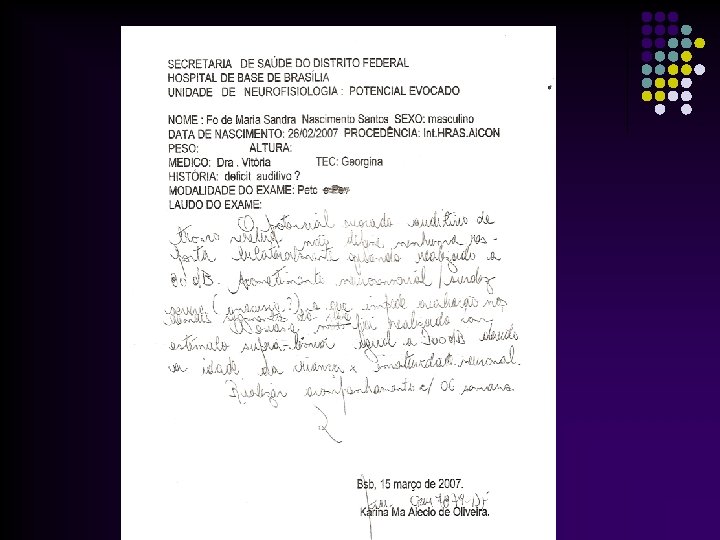 SECRETARIA DE SAÚDE DO DISTRITO FEDERAL
HOSPITAL DE BASE DE BRASÍLIA
UNIDADE DE NEUROFISIOLOGIA : POTENCIAL EVOCADO
NOME : Fo de Maria Sandra Nascimento Santos SEXO: masculino
DATA DE NASCIMENTO: 26/02/2007 PROCEDÊNCIA: Int.HRAS.AlCON
PESO: ALTURA:
MEDICO: Dra . Vitória TEC: Georgina
HISTÓRIA: deficit auditivo ?
MODALIDADE DO EXAME: Peatc e Pev
LAUDO DO EXAME:
O potencial evocado auditivo de
tronco cerebral não nenhuma res-
posta bilateralmente quando realizado a
dB. neurossensorial / surdez
severa ( ?) o que impede avaliação nos
não foi realizado com
estímulo supra-liminar igual a dB devido
a idade da criança x imaturidade neuronal.
Realizar acompanhamento c/ 06 semanas.
Bsb, 15 março de 2007.
Karina Ma Alecio de Oliveira.